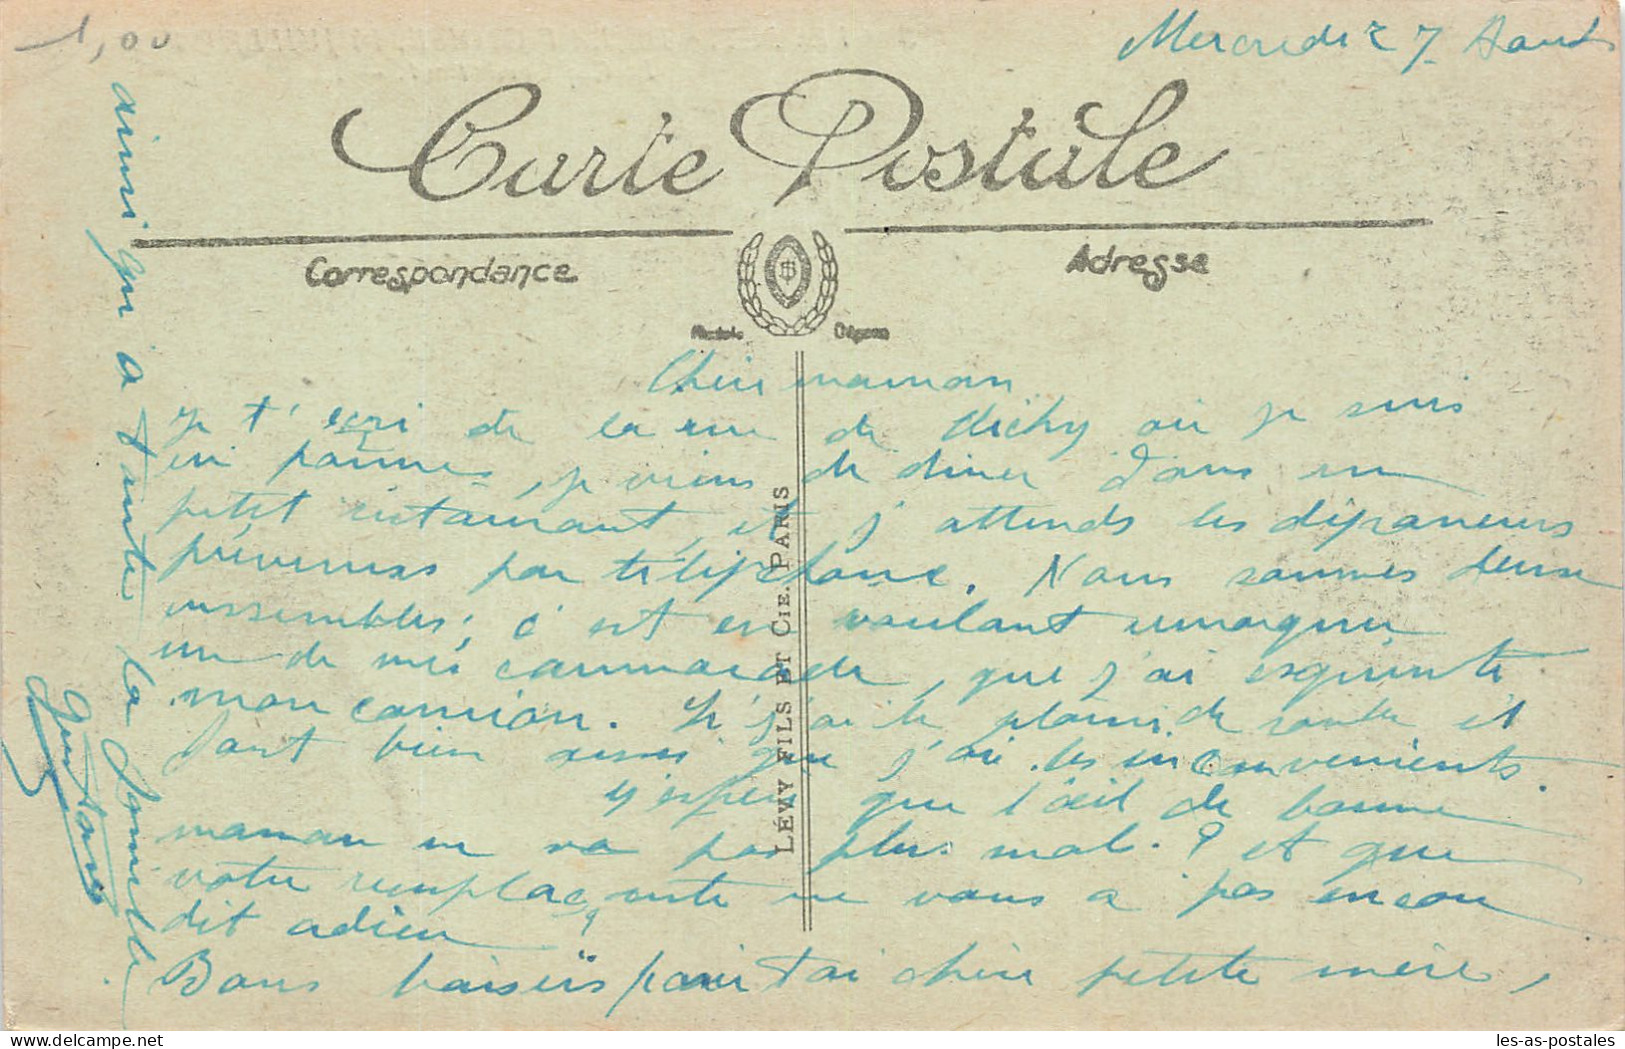 1,00
Mercredi 27 Aout
Carte Postale
Correspondance
Adresse
LÉVY FILS ET CIE. PARIS
Chere maman
Je t'ecri de la rue de Vichy où je suis
en pannes, je viens de diner dans un
petit restaurant, et j'attends les dépaneurs
prévenus par téléphone. Nous sommes deux
enssembles; c'est en voulant remorquer
un de mes cammarade, que j'ai esquinte
mon camion. Si j'ai le plaisir de route et
faut bien que j'ai les inconvenients.
J'espere que l'œil de bonne
maman ne va pas plus mal. ? et que
votre remplaçante ne vous a pas encore
dit adieu
Bons baisers pour toi chère petite mère,
ainsi qu'a toute la famille
les-as-postales